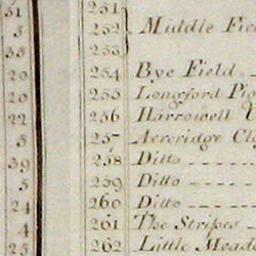 31 251
5 252 Middle Fie
35 253
20 254 Bye Field
20 255 Longford Pig
22 256 Harrowell
5 257 Aeriridge Clo
39 258 Ditto
5 259 Ditto
24 260 Ditto
4 261 The Stripes
25 262 Little Meado